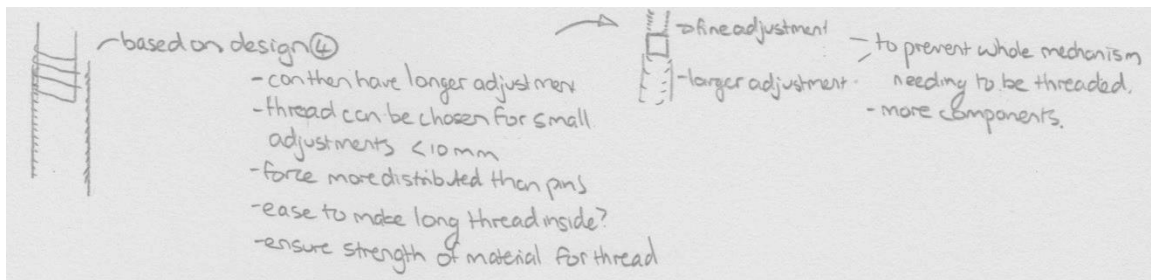 based on design ④
- can then have longer adjustment
- thread can be chosen for small
adjustments <10mm
- force more distributed than pins
- ease to make long thread inside?
- ensure strength of material for thread
fine adjustment
- larger adjustment
- to prevent whole mechanism
needing to be threaded.
- more components.